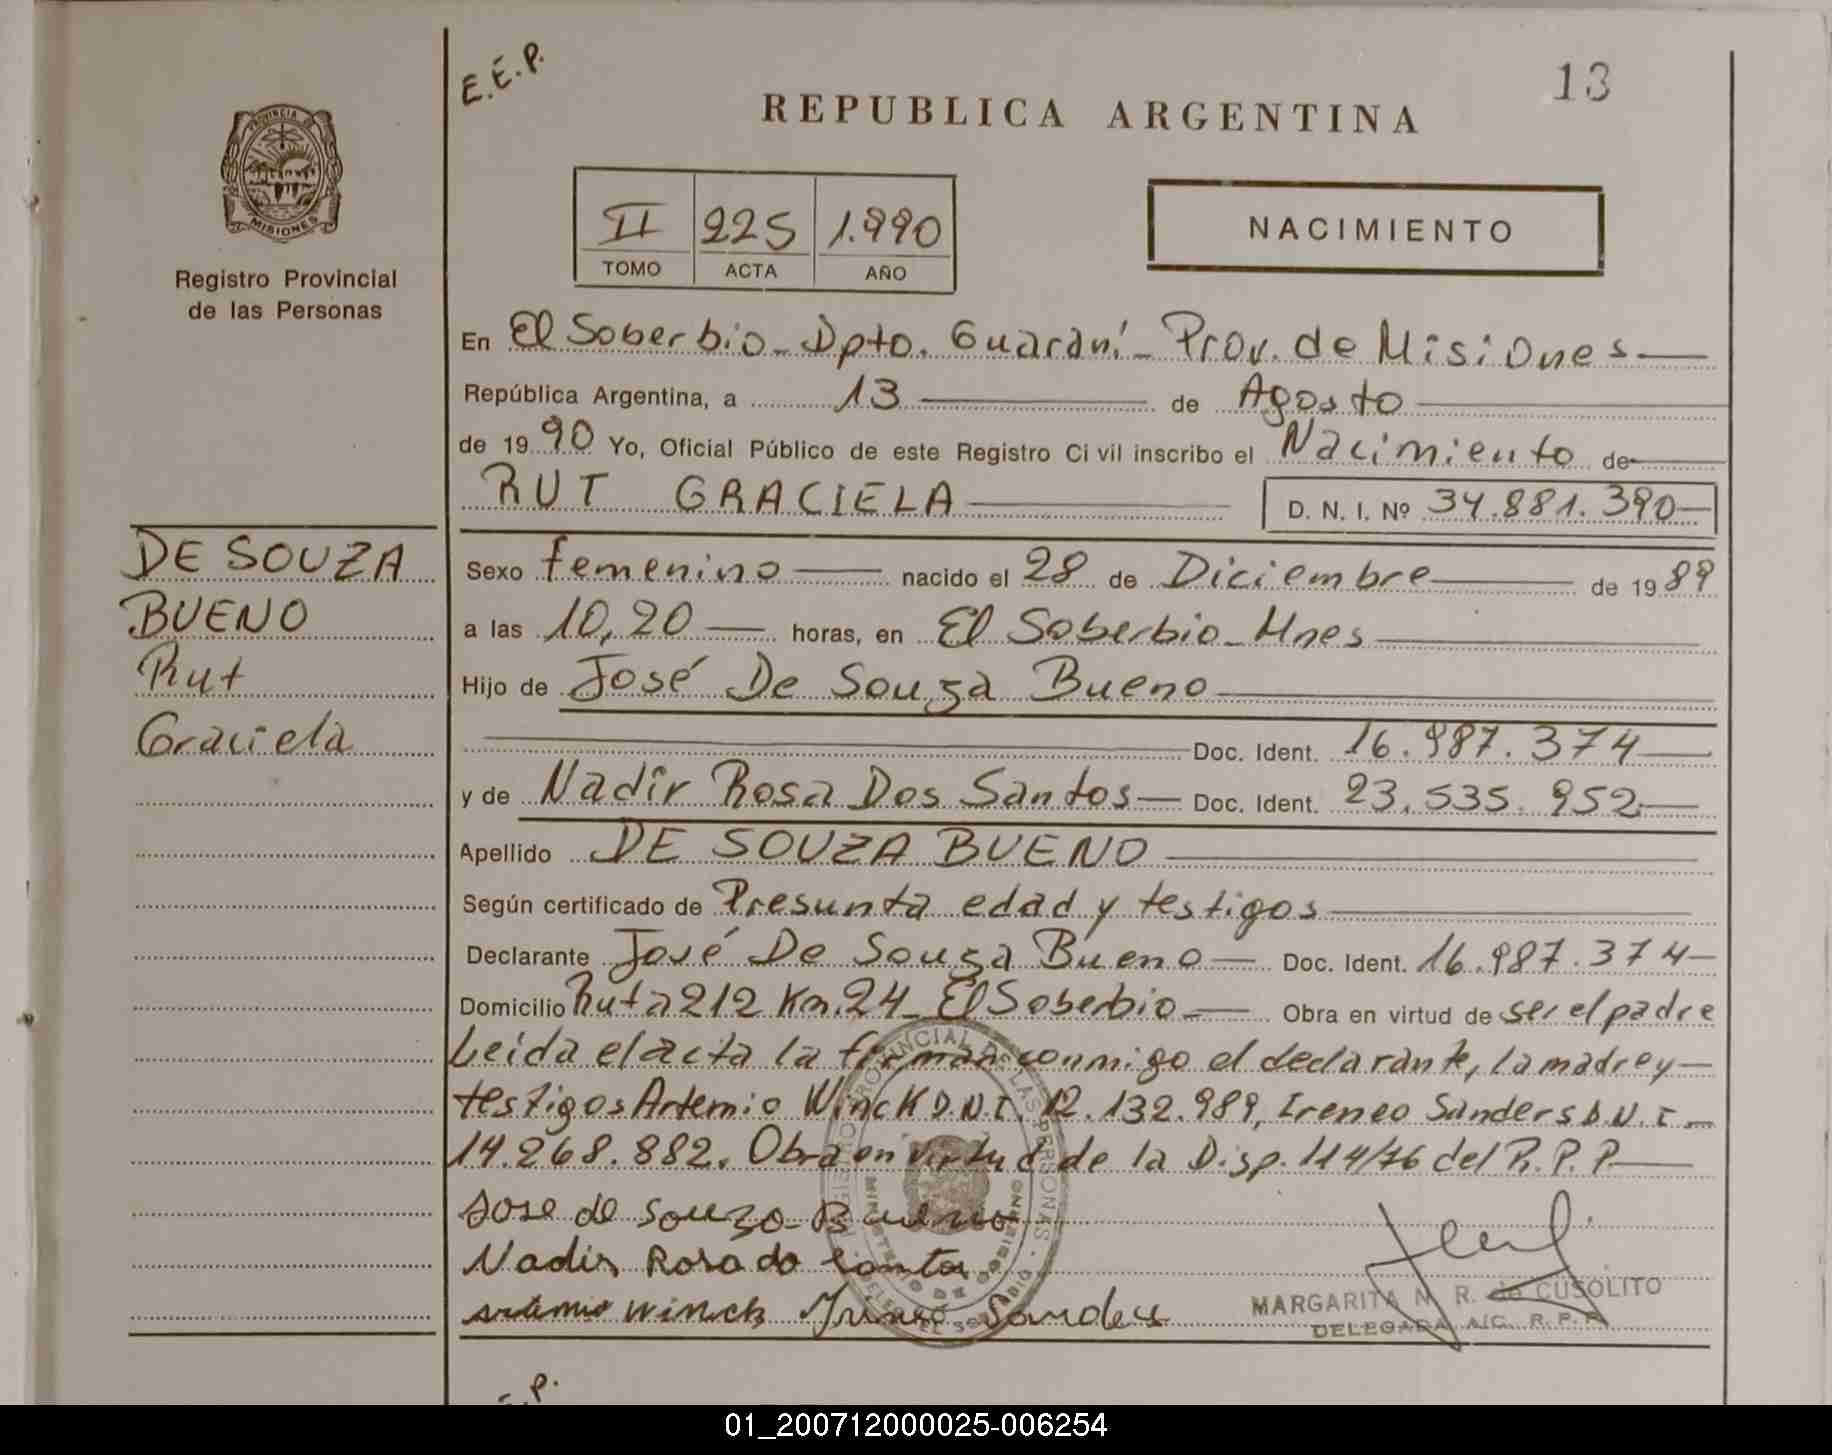 E.E.P.
13
REPUBLICA ARGENTINA
PROVINCIA DE
MISIONES
Registro Provincial
de las Personas
II 225 1.990
TOMO ACTA AÑO
NACIMIENTO
En El Soberbio - Dpto. Guaraní - Prov. de Misiones
República Argentina, a 13 de Agosto
de 19 90 Yo, Oficial Público de este Registro Civil inscribo el Nacimiento de
RUT GRACIELA D. N. I. Nº 34.881.390
DE SOUZA
BUENO
Rut
Graciela
Sexo femenino nacido el 28 de Diciembre de 19 89
a las 10,20 horas, en El Soberbio - Mnes
Hijo de José De Souza Bueno
Doc. Ident. 16.987.374
y de Nadir Rosa Dos Santos Doc. Ident. 23.535.952
Apellido DE SOUZA BUENO
Según certificado de Presunta edad y testigos
Declarante José De Souza Bueno Doc. Ident. 16.987.374
Domicilio Ruta 212 Km. 24 - El Soberbio Obra en virtud de ser el padre
Leida el acta la firman conmigo el declarante, la madre y
testigos Artemio Winck D.N.I. 12.132.989, Ireneo Sanders D.N.I.
14.268.882. Obra en virtud de la Disp. 114/76 del R.P.P.
Jose de Souza Bueno
Nadir Rosa do Santos
Artemio Winck Ireneo Sanders
REGISTRO PROVINCIAL DE LAS PERSONAS
MINISTERIO DE GOBIERNO
MARGARITA N. R. de CUSOLITO
DELEGADA A/C. R. P. P.
E.P.
01_200712000025-006254